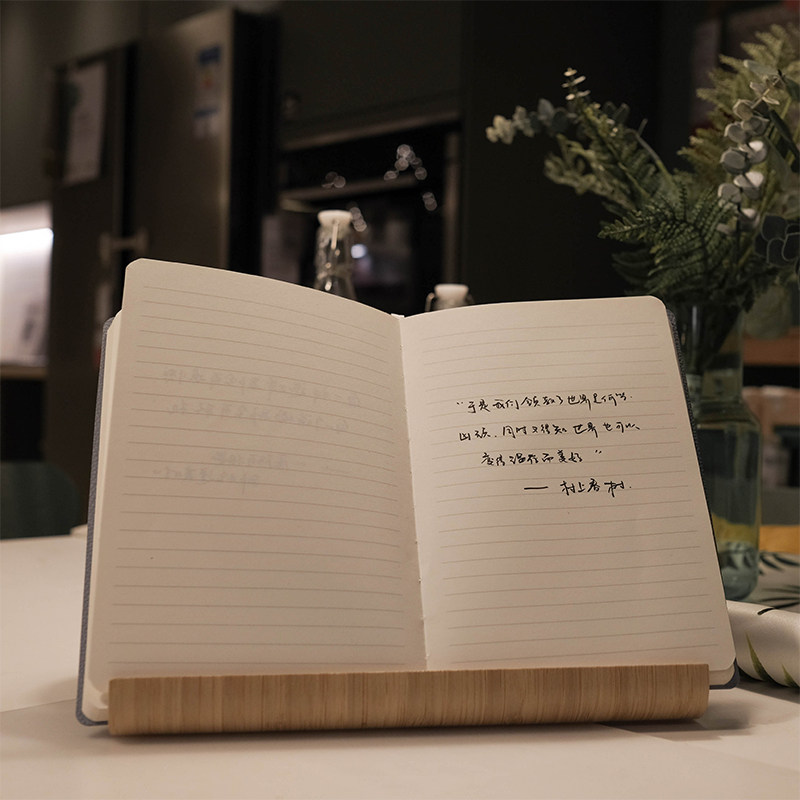 “于是我们领教了世界是何等
凶顽，同时又得知世界也可以
变得温存和美好”
—— 村上春树.